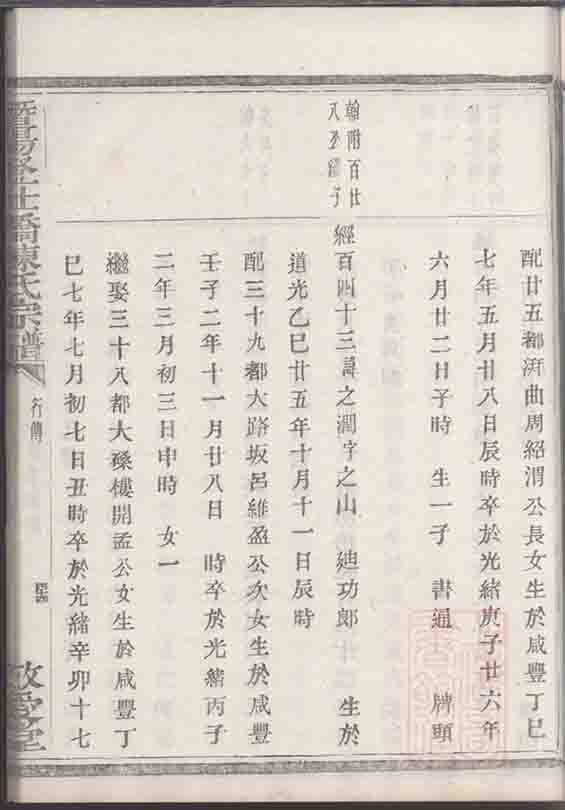 配廿五都湃曲周紹渭公長女生於咸豐丁巳
七年五月廿八日辰時卒於光緒庚子廿六年
六月廿二日子時 生一子 書通 牌頭
翰附百廿
八丞繼子
經百四十三諱之潤字之山 迪功郎 生於
道光乙巳廿五年十月十一日辰時
配三十九都大路坂呂維盈公次女生於咸豐
壬子二年十一月廿八日 時卒於光緒丙子
二年三月初三日申時 女一
繼娶三十八都大磉樓開孟公女生於咸豐丁
巳七年七月初七日丑時卒於光緒辛卯十七
暨陽 橋陳氏宗譜
行傳
敬愛堂